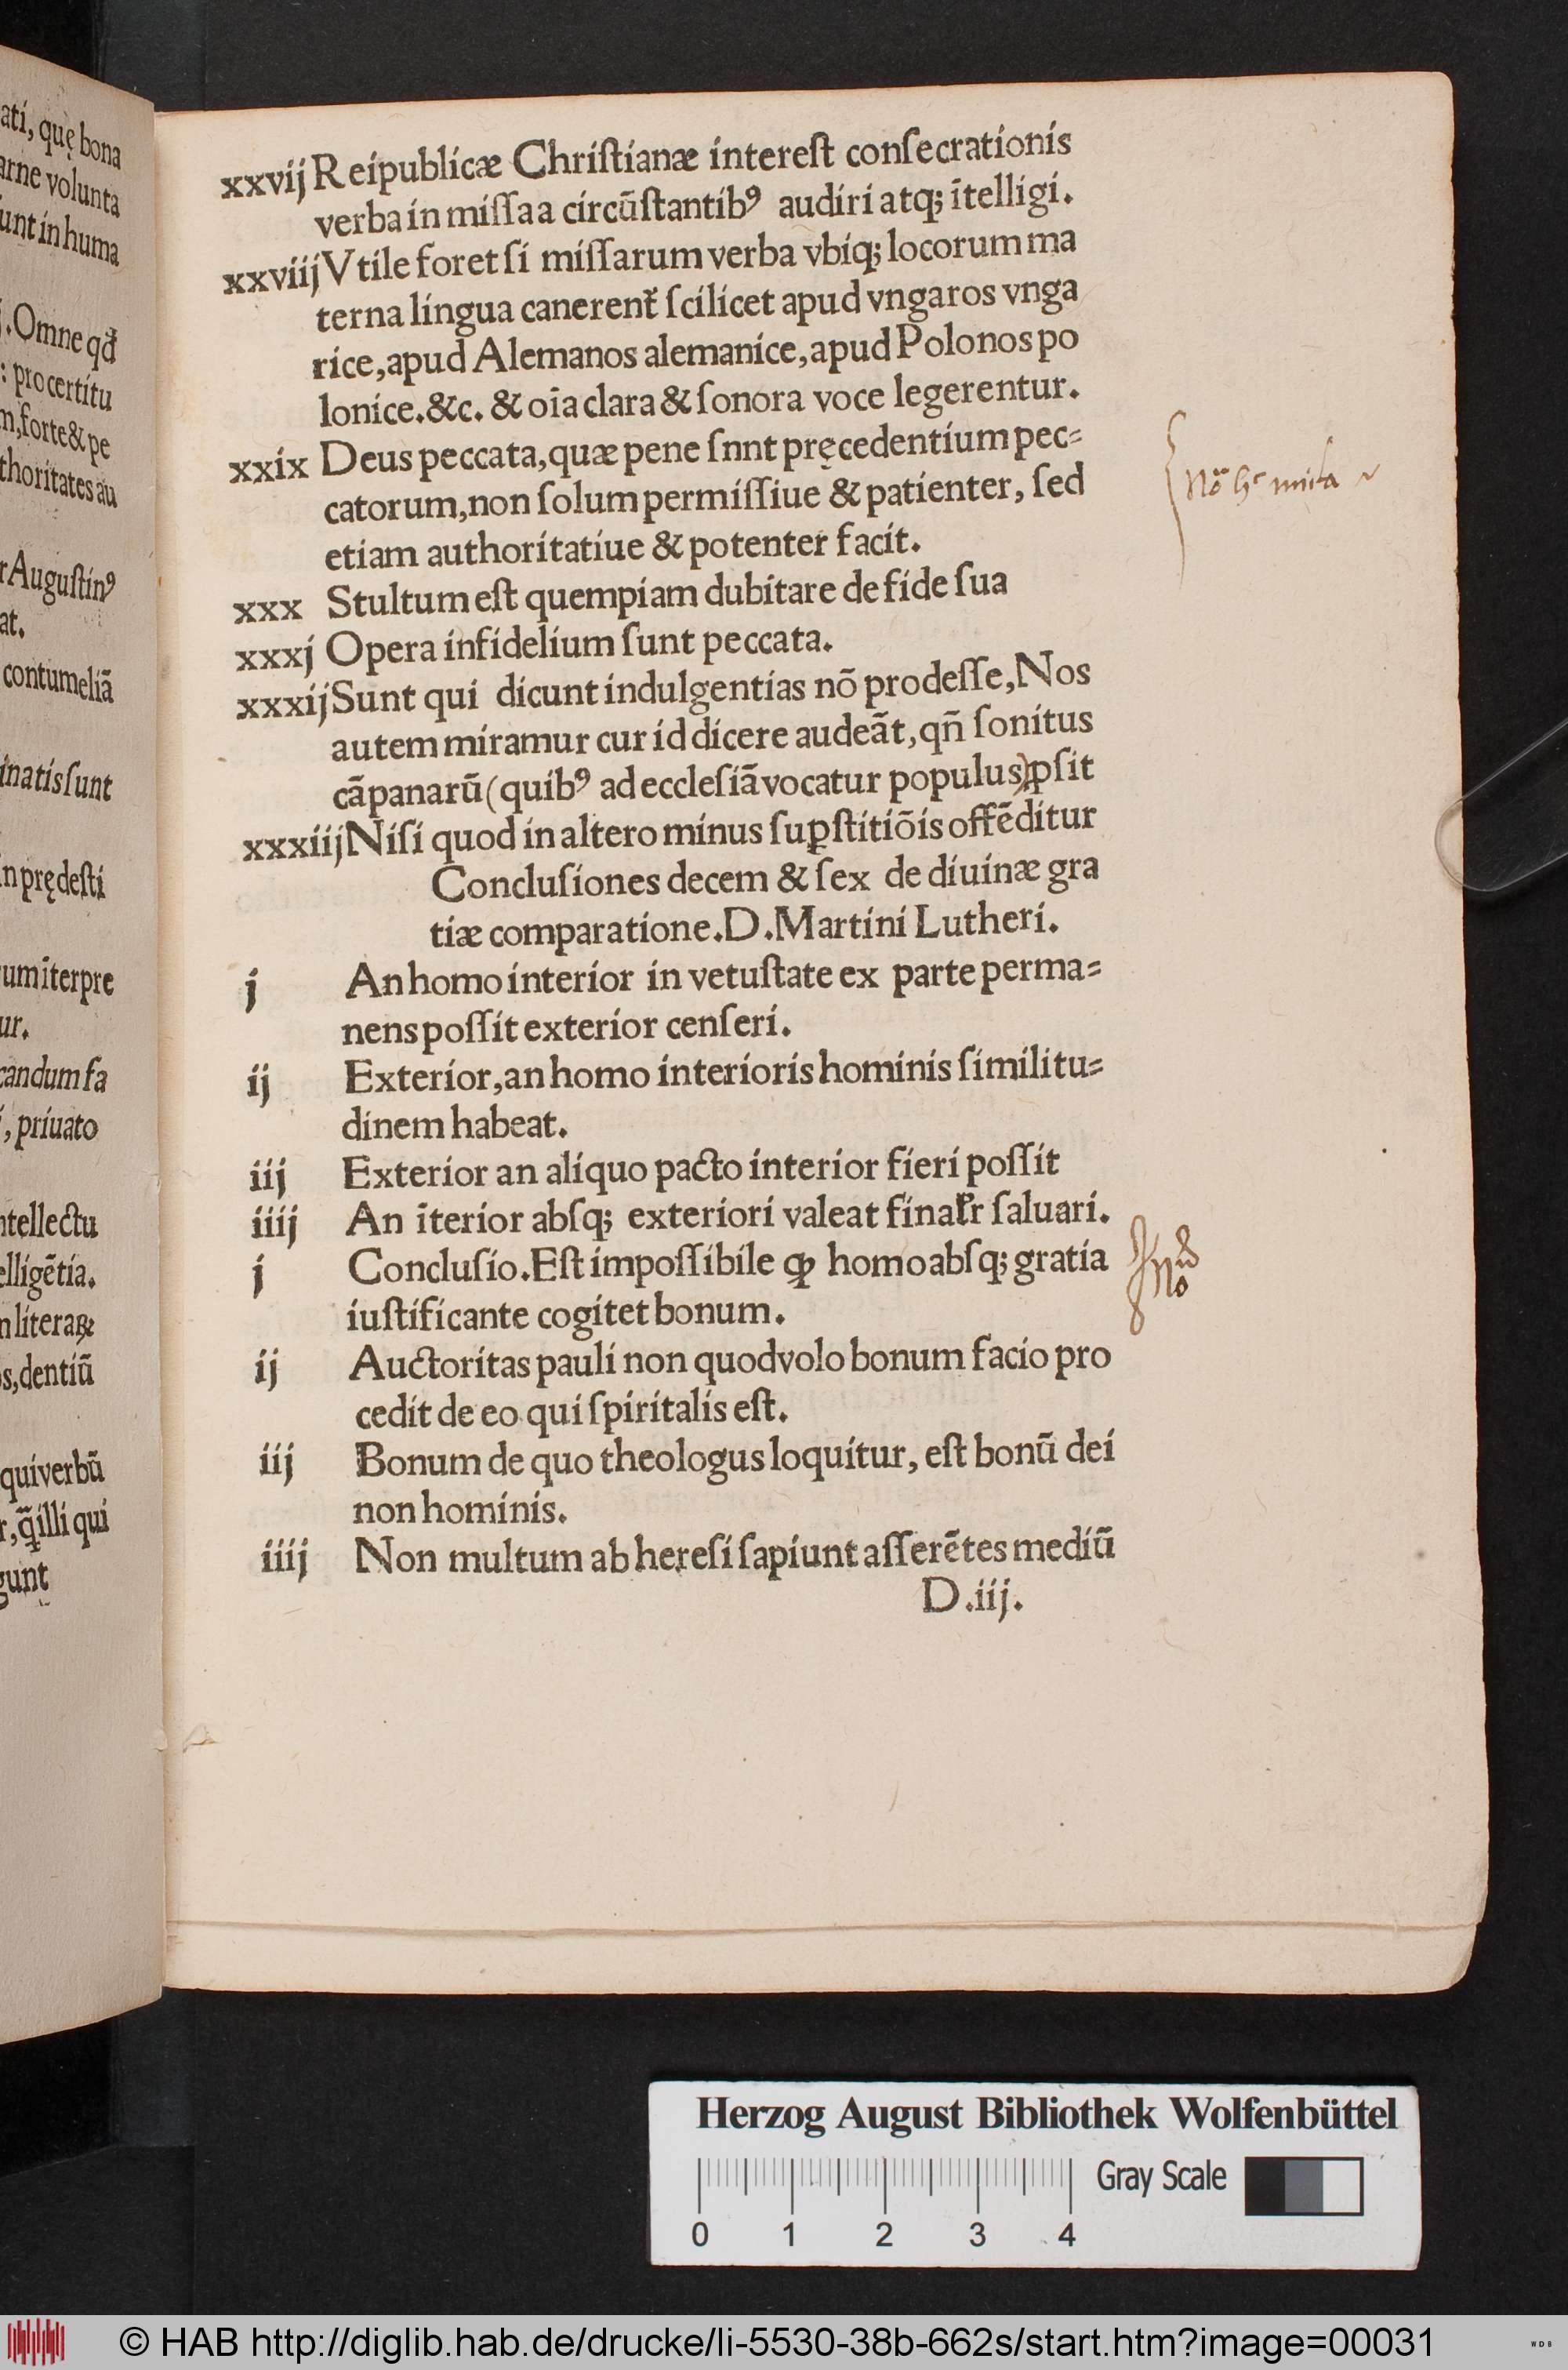 ati, quę bona
arne volunta
unt in huma
j. Omne qđ
: pro certitu
m, forte & pe
thoritates au
r Augustinꝰ
at.
contumeliā
inatis sunt
in prędesti
um īterpre
ur.
candum fa
, priuato
ntellectu
elligētia.
n literaꝝ
s, dentiū
qui verbū
illi qui
gunt
xxvij Reipublicæ Christianæ interest consecrationis
verba in missa a circūstantibꝰ audiri atq; ītelligi.
xxviij Vtile foret si missarum verba vbiq; locorum ma
terna lingua canerent̃ scilicet apud vngaros vnga
rice, apud Alemanos alemanice, apud Polonos po
lonice. &c. & oīa clara & sonora voce legerentur.
xxix Deus peccata, quæ pene snnt pręcedentium pec⸗
catorum, non solum permissiue & patienter, sed
etiam authoritatiue & potenter facit.
xxx Stultum est quempiam dubitare de fide sua
xxxj Opera infidelium sunt peccata.
xxxij Sunt qui dicunt indulgentias nō prodesse, Nos
autem miramur cur id dicere audeāt, qñ sonitus
cāpanarū (quibꝰ ad ecclesiā vocatur populus) ꝓsit
xxxiij Nisi quod in altero minus suꝑstitiōis offēditur
Conclusiones decem & sex de diuinæ gra
tiæ comparatione. D. Martini Lutheri.
j An homo interior in vetustate ex parte perma⸗
nens possit exterior censeri.
ij Exterior, an homo interioris hominis similitu⸗
dinem habeat.
iij Exterior an aliquo pacto interior fieri possit
iiij An īterior absq; exteriori valeat finaƚr saluari.
j Conclusio. Est impossibile ꝙ homo absq; gratia
iustificante cogitet bonum.
ij Auctoritas pauli non quod volo bonum facio pro
cedit de eo qui spiritalis est.
iij Bonum de quo theologus loquitur, est bonū dei
non hominis.
iiij Non multum ab heresi sapiunt asserētes mediū
D. iij.
Herzog August Bibliothek Wolfenbüttel
Gray Scale
0 1 2 3 4
© HAB http://diglib.hab.de/drucke/li-5530-38b-662s/start.htm?image=00031